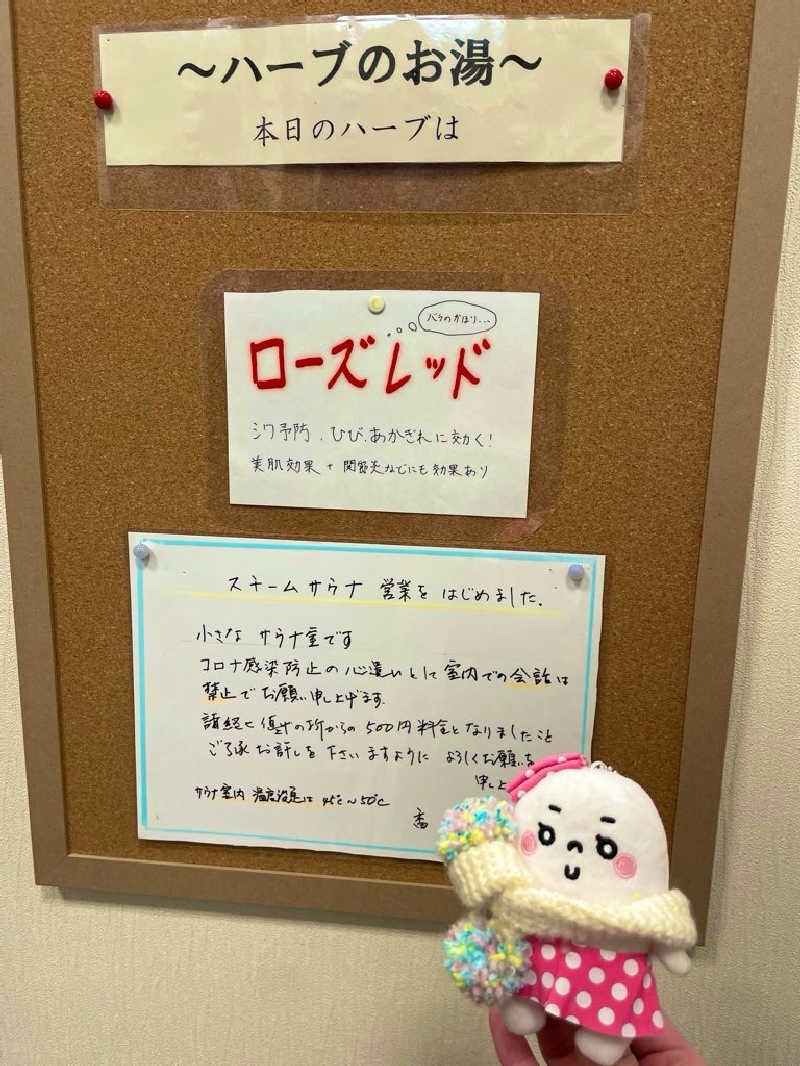 ～ハーブのお湯～
本日のハーブは
バラのかほり...
ローズレッド
シワ予防、ひび、あかぎれに効く！
美肌効果＋関節炎などにも効果あり
スチームサウナ 営業を はじめました。
小さな サウナ室です
コロナ感染防止の心遣いとして室内での会話は
禁止でお願い申し上げます。
諸経 の折からの 500円料金となりましたこと
ご了承お許しを下さいますように よろしくお願いを
申し上
サウナ室内 温度設定は 45℃～50℃